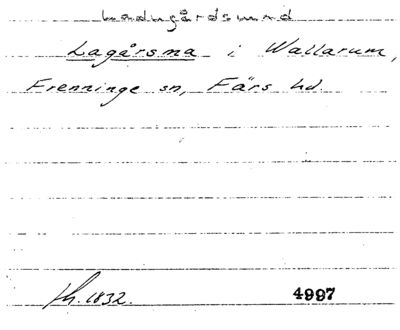 Ladugårdsmad
Lagårsma i Wallarum,
Frenninge sn, Färs hd.
Kh. 1832. 4997